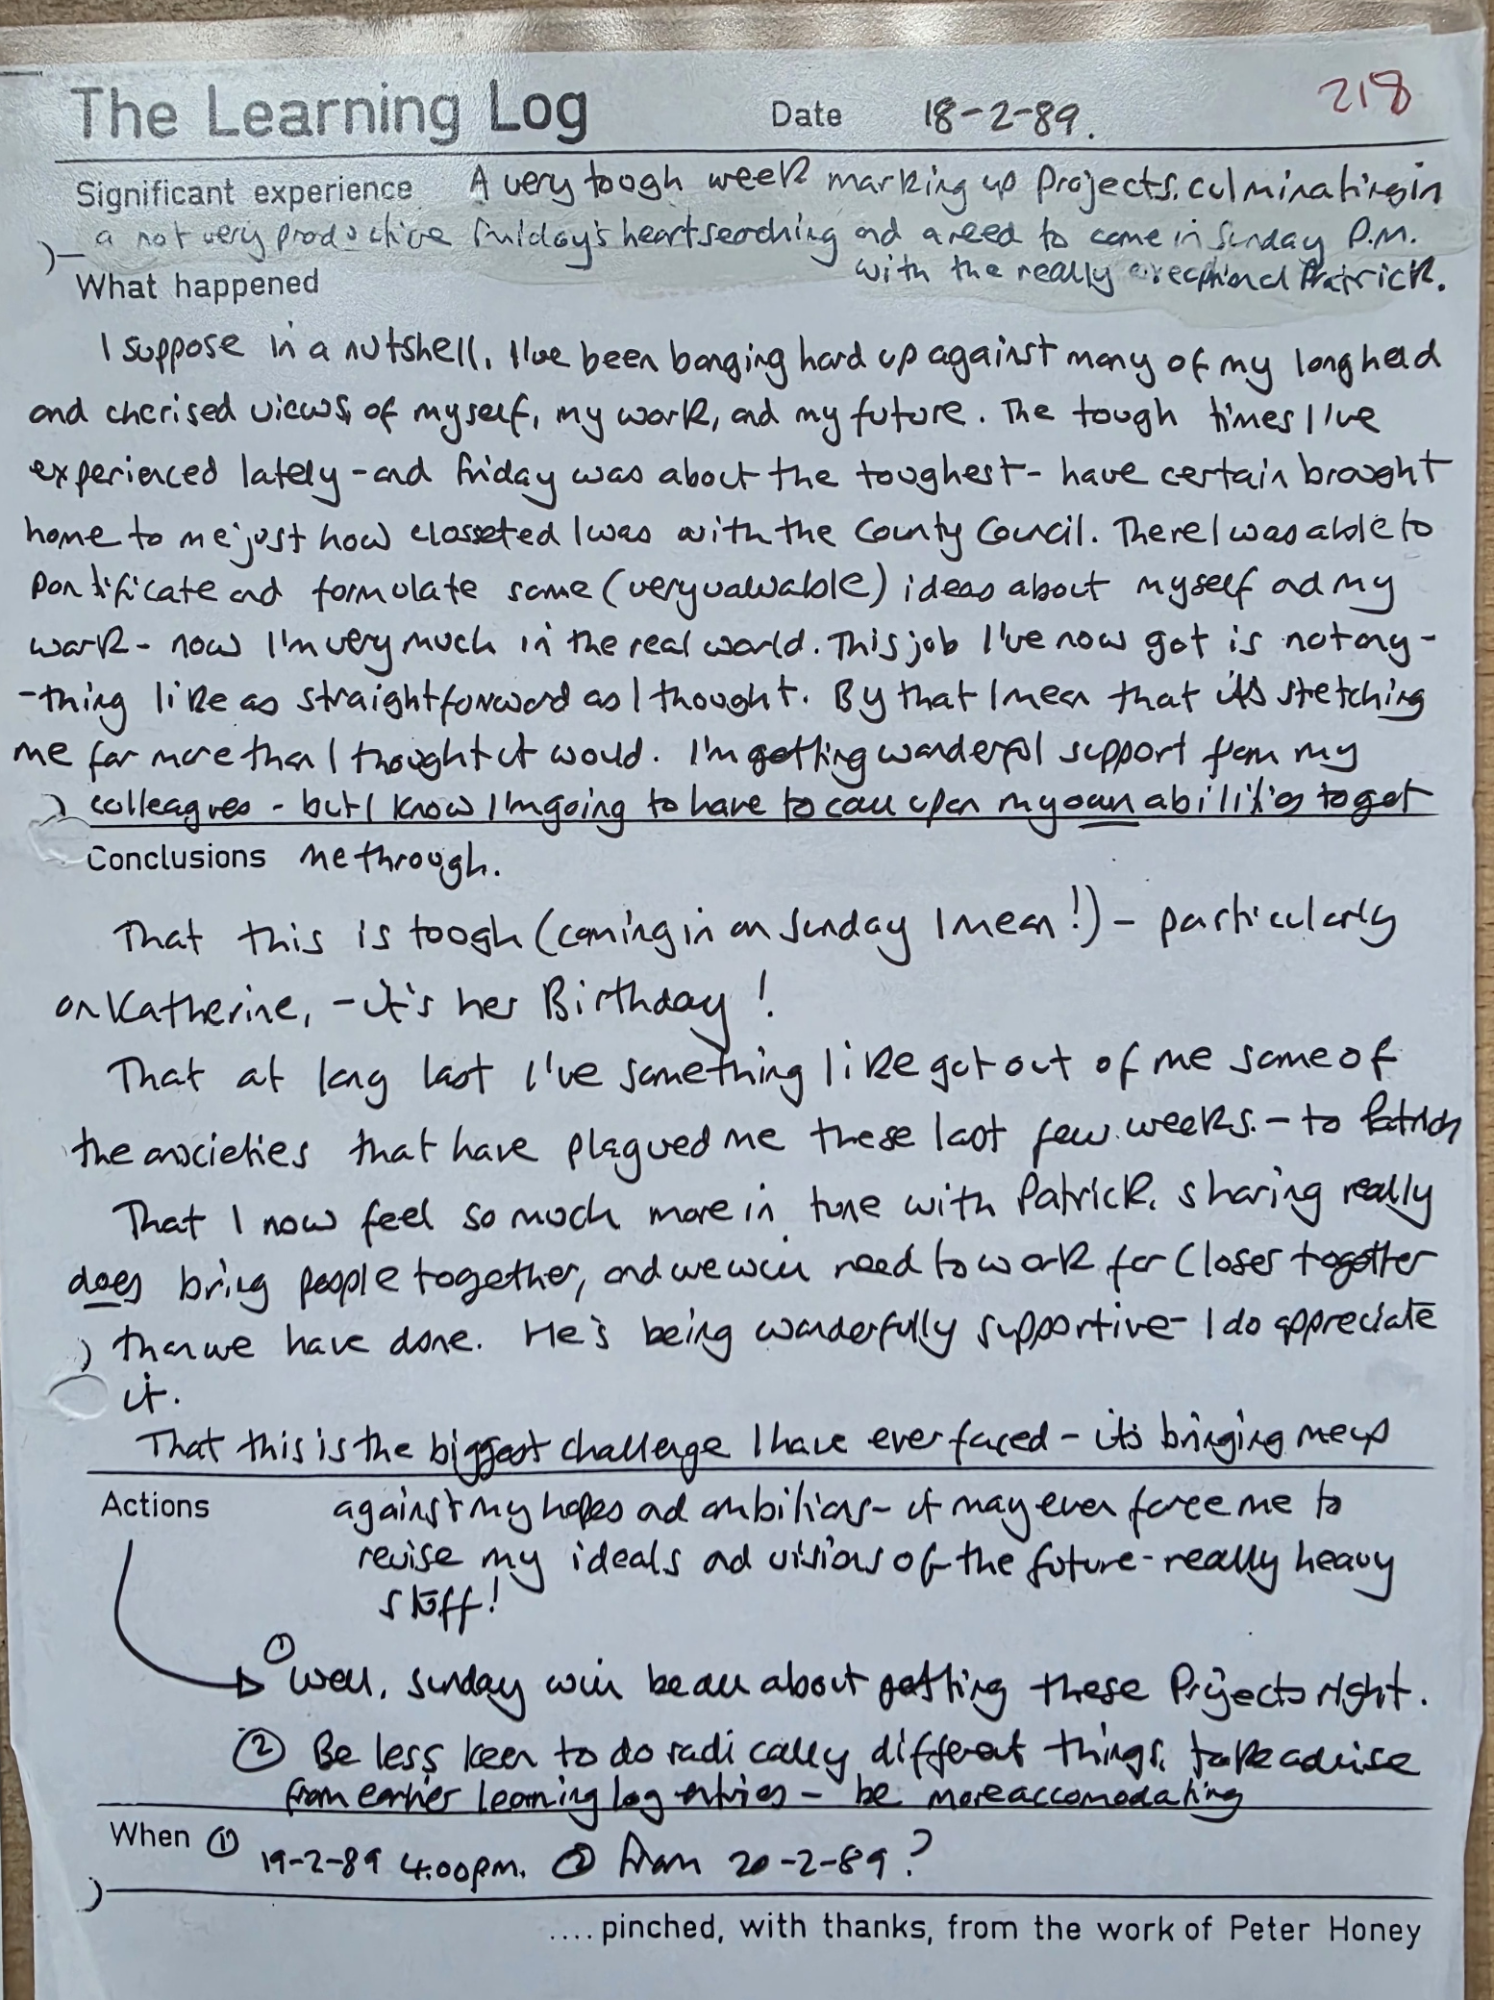 The Learning Log Date 18-2-89. 218
Significant experience A very tough week marking up Projects, culminating in
a not very productive Friday's heartsearching and a need to come in Sunday P.M.
What happened with the really exceptional Patrick.
I suppose in a nutshell, I've been banging hard up against many of my long head
and cherised views, of myself, my work, and my future. The tough times I've
experienced lately - and Friday was about the toughest - have certain brought
home to me just how closseted I was with the County Council. There I was able to
pontificate and formulate some (very valuable) ideas about myself and my
work - now I'm very much in the real world. This job I've now got is not any-
-thing like as straightforward as I thought. By that I mean that it's stretching
me far more than I thought it would. I'm getting wonderful support from my
colleagues - but I know I'm going to have to call upon my own abilities to get
Conclusions me through.
That this is tough (coming in on Sunday I mean!) - particularly
on Katherine, - it's her Birthday!
That at long last I've something like got out of me some of
the anxieties that have plagued me these last few weeks. - to Patrick
That I now feel so much more in tune with Patrick, sharing really
does bring people together, and we will need to work far closer together
than we have done. He's being wonderfully supportive - I do appreciate
it.
That this is the biggest challenge I have ever faced - it's bringing me up
Actions against my hopes and ambitions - it may even force me to
revise my ideals and visions of the future - really heavy
stuff!
① Well, Sunday will be all about getting these Projects right.
② Be less keen to do radically different things, take advise
from earlier learning log entries - be more accomodating
When ① 19-2-89 4.00pm. ② From 20-2-89?
.... pinched, with thanks, from the work of Peter Honey